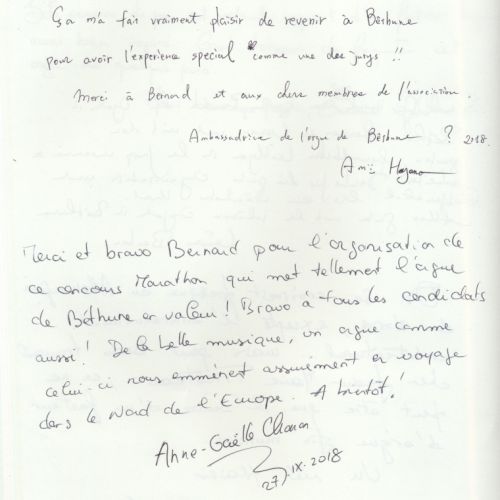 Ça m'a fait vraiment plaisir de revenir à Béthune
pour avoir l'experience special comme une des jurys !!
Merci à Bernard et aux chers membres de l'association.
Ambassadrice de l'orgue de Béthune ? 2018.
Ami Hoyano
Merci et bravo Bernard pour l'organisation de
ce concours Marathon qui met tellement l'orgue
de Béthune en valeur ! Bravo à tous les candidats
aussi ! De la belle musique, un orgue comme
celui-ci nous emmènent assurément en voyage
dans le Nord de l'Europe. A bientôt !
Anne-Gaëlle Chanon
27.IX.2018